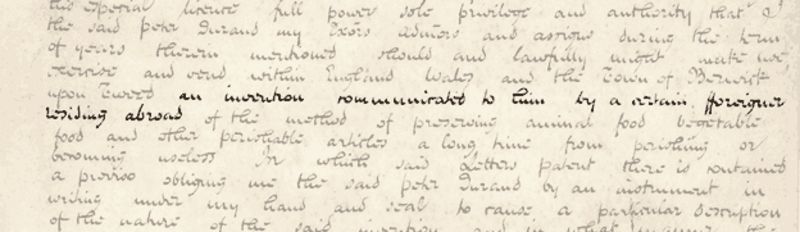 this especial licence full power sole privilege and authority that I
the said Peter Durand my Exors Admors and assigns during the term
of years therein mentioned should and lawfully might make use,
exercise and vend within England Wales and the Town of Berwick
upon Tweed an invention communicated to him by a certain foreigner
residing abroad of the method of preserving animal food vegetable
food and other perishable articles a long time from perishing or
becoming useless In which said Letters patent there is contained
a proviso obliging me the said Peter Durand by an instrument in
writing under my hand and seal to cause a particular Description
of the nature of the said invention and in what manner the